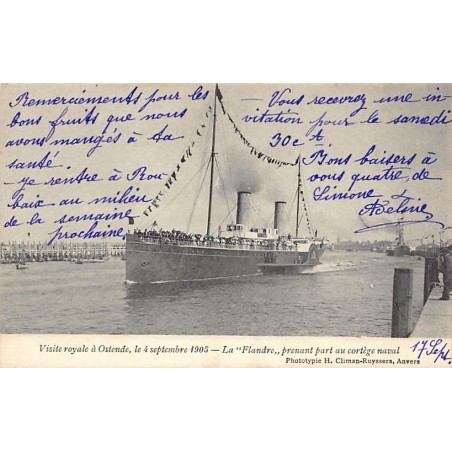 Remerciements pour les
bons fruits que nous
avons mangés à ta
santé.
- je rentre à Rou
baix au milieu
de la semaine
prochaine
- Vous recevrez une in
vitation pour le samedi
30
Bons baisers à
vous quatre, de
Simone
Adeline
Visite royale à Ostende, le 4 septembre 1905 — La "Flandre,, prenant part au cortège naval
Phototypie H. Climan-Ruyssers, Anvers
17 Sept.